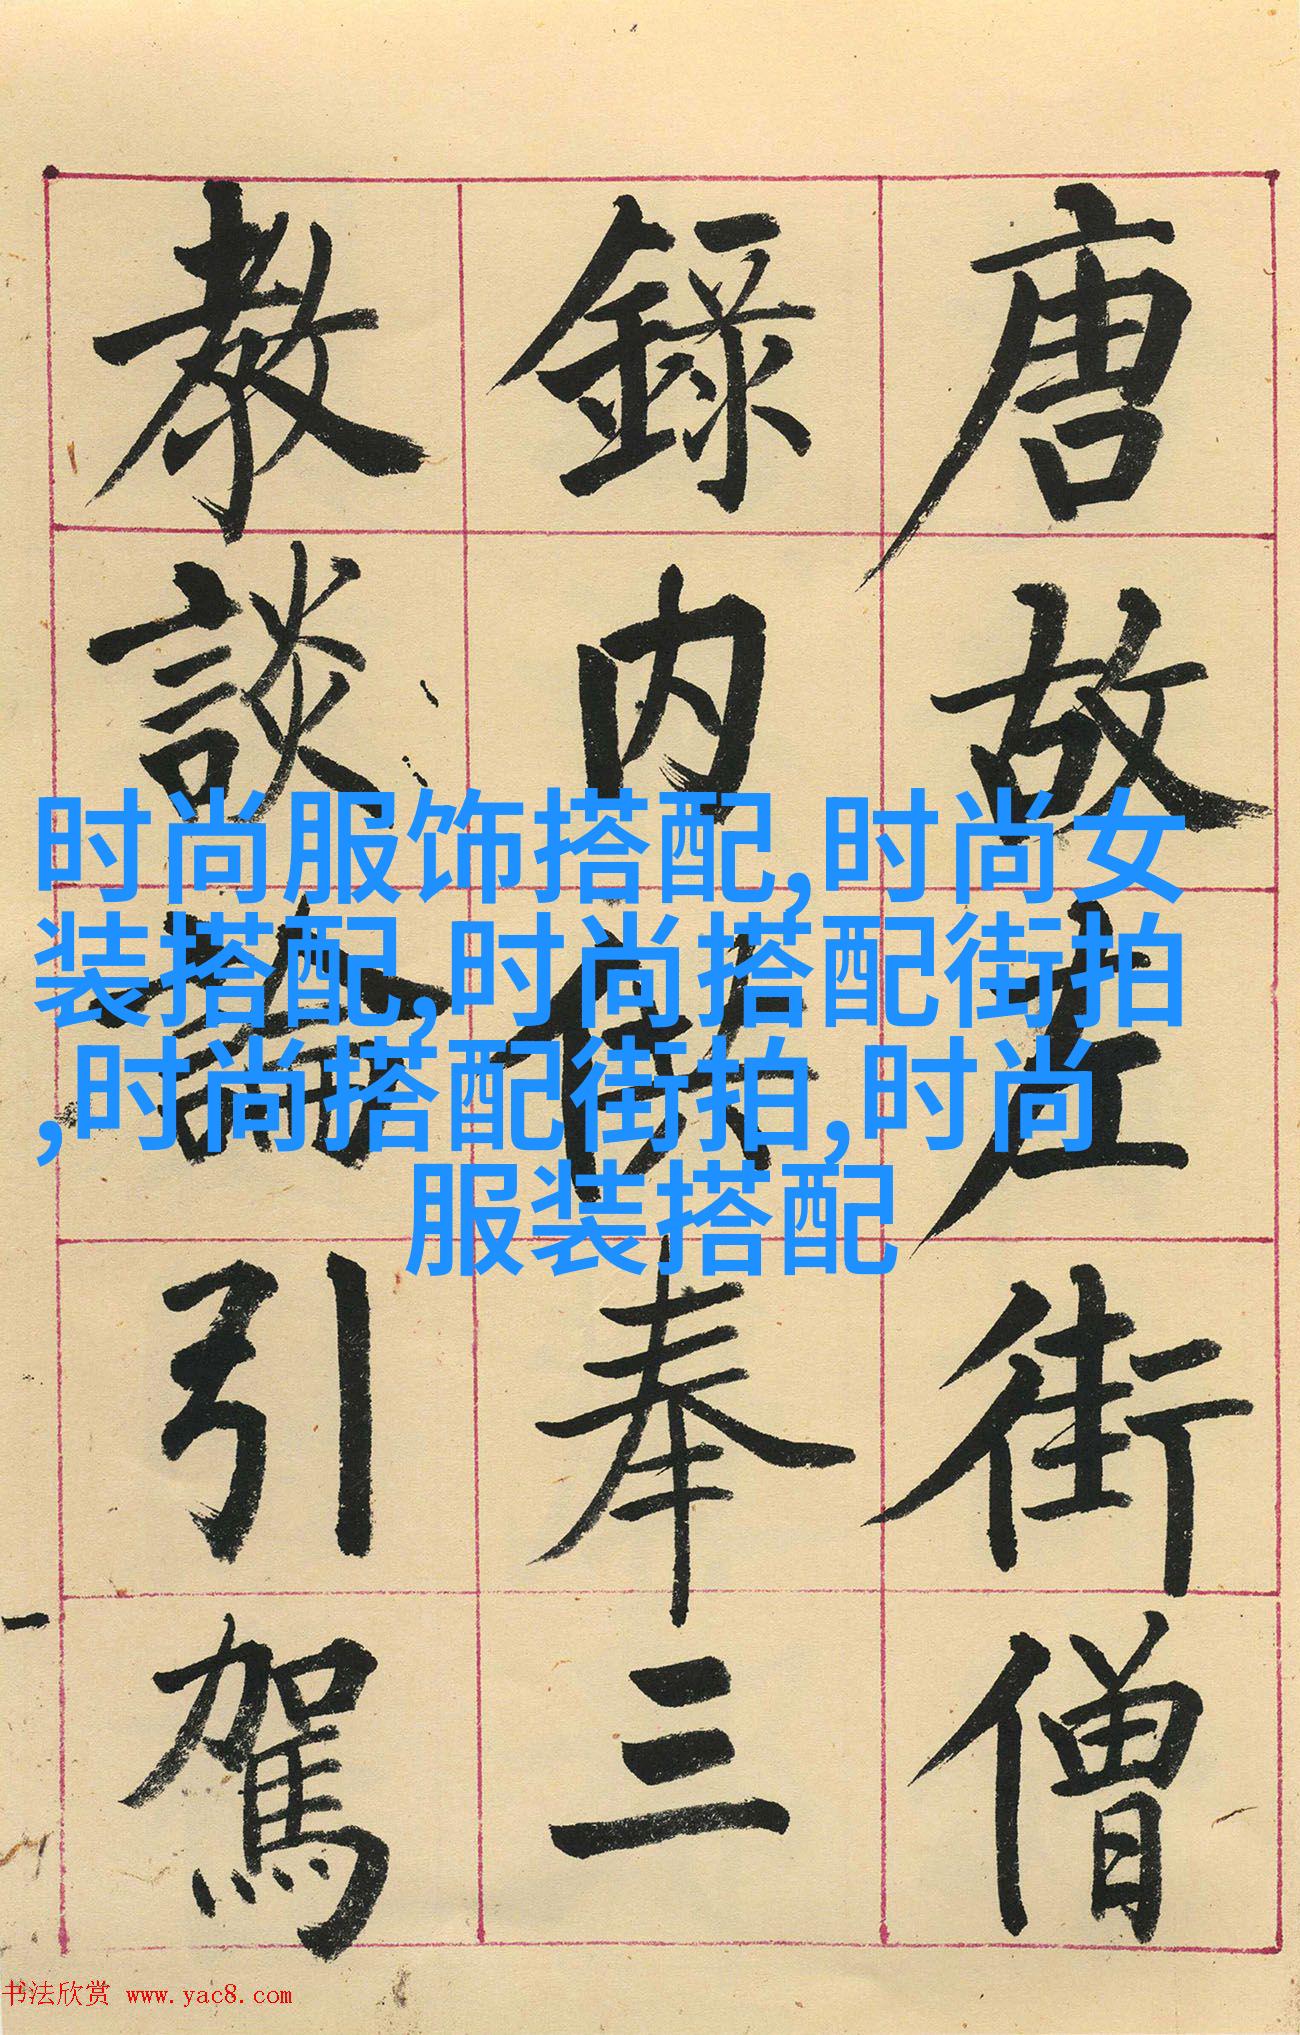 唐故左街僧
録内供奉三
教談論引駕
时尚服饰搭配,时尚女
装搭配,时尚搭配街拍
,时尚搭配街拍,时尚
服装搭配
书法欣赏 www.yac8.com